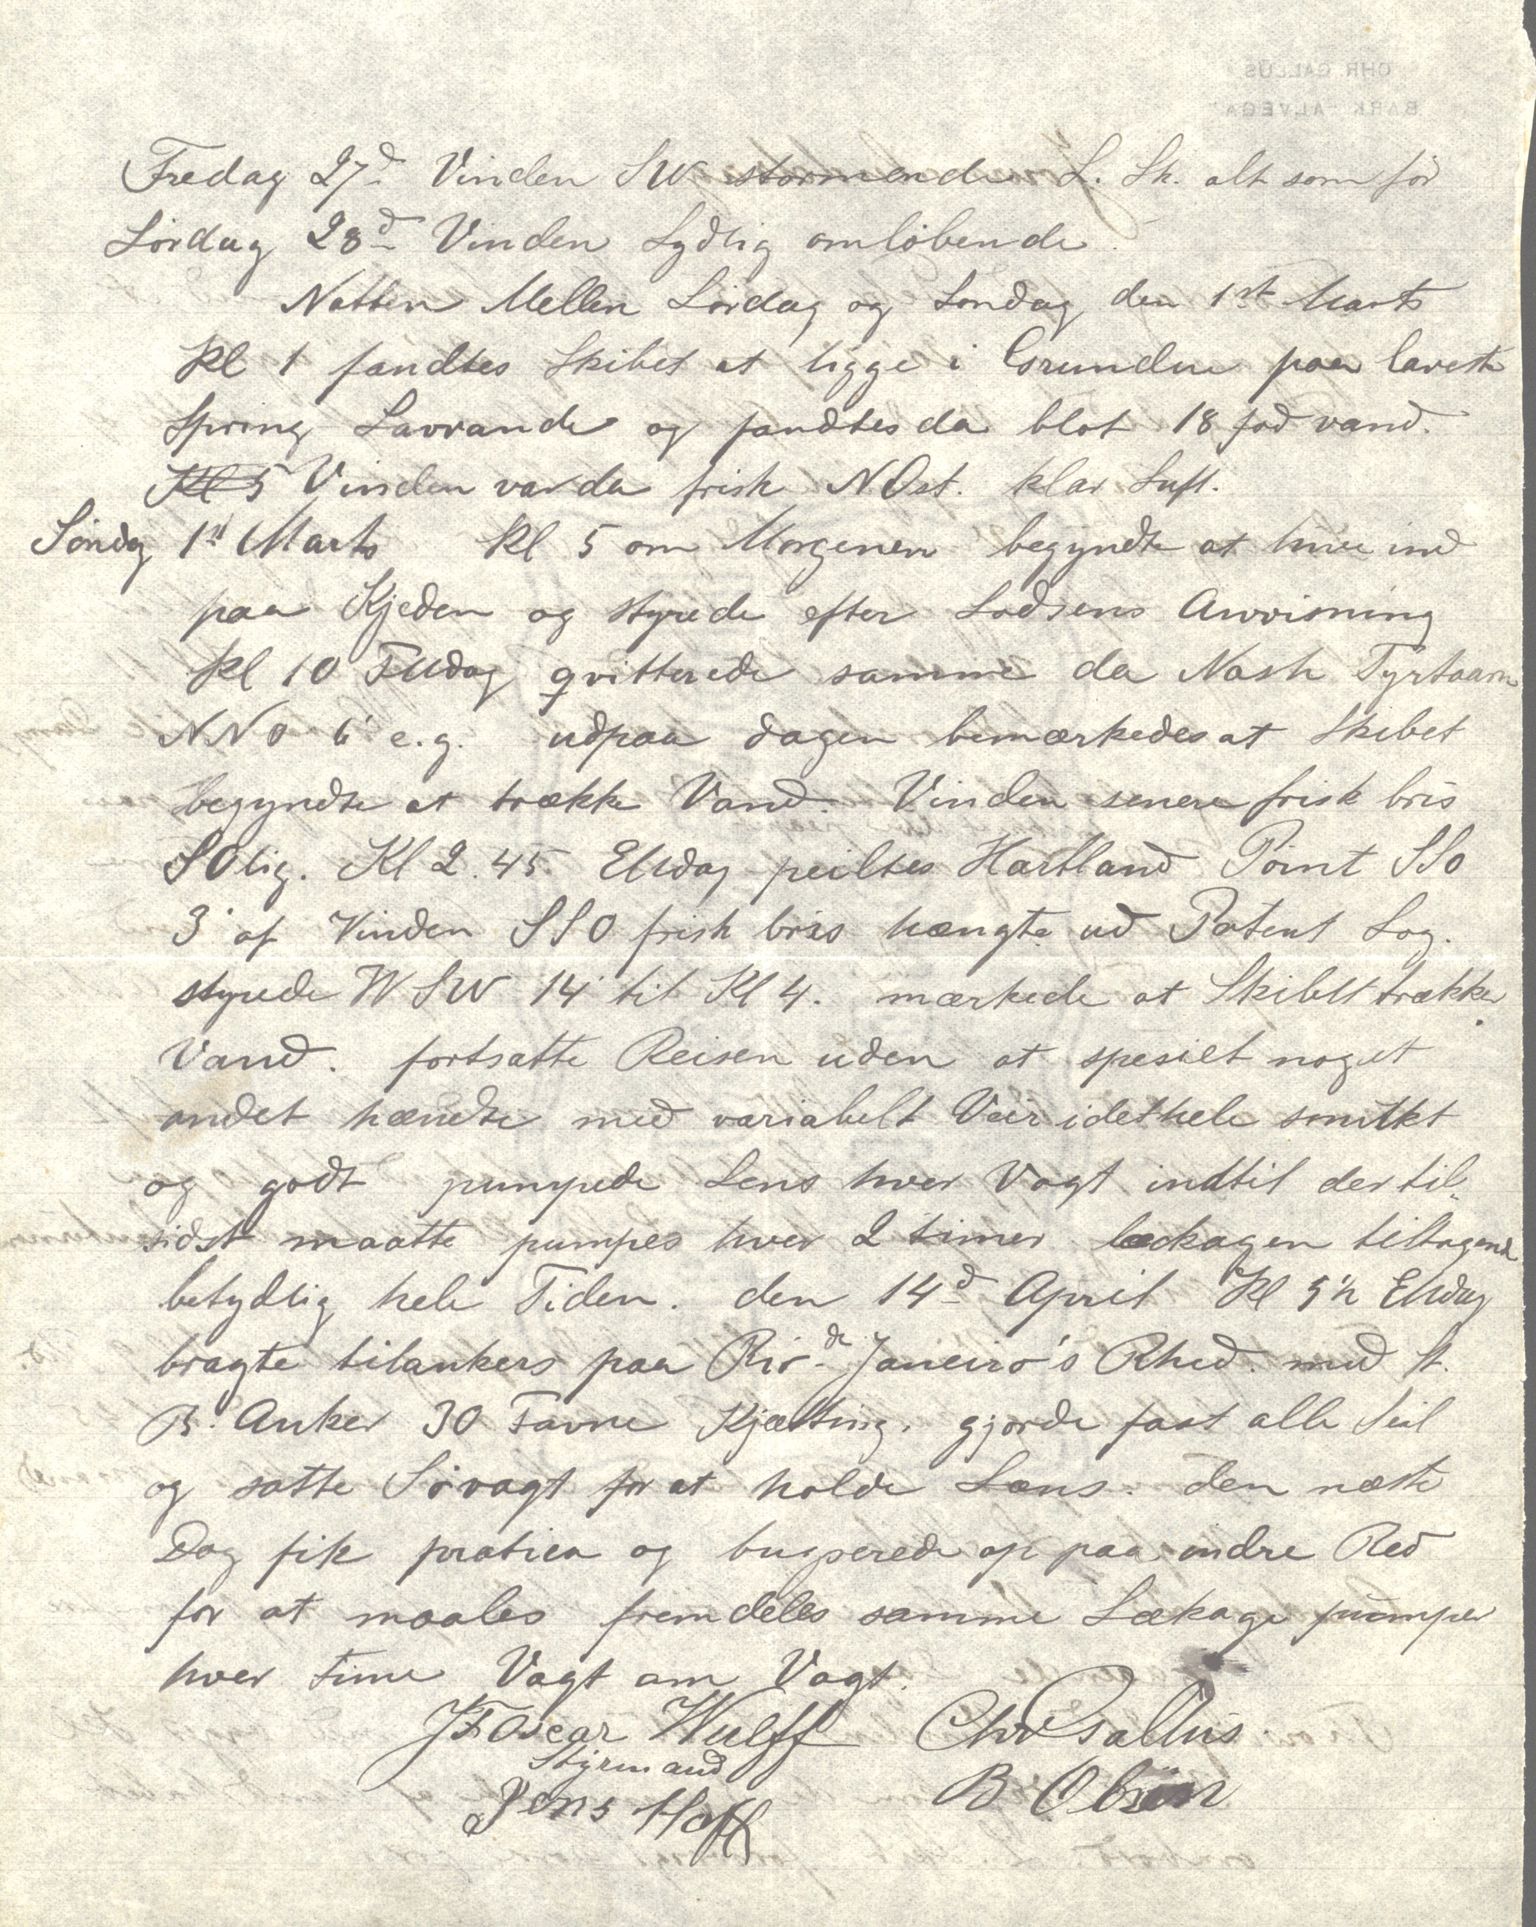 Fredag 27d Vinden SW stormende L. Sk. alt som før
Lørdag 28d Vinden Sydlig omløbende
Natten Mellen Lørdag og Søndag den 1st Marts
Kl 1 fandtes Skibet at ligge i Grunden paa laveste
Spring Lavvande og fandtes da blot 18 fod vand.
Kl 5 Vinden var da frisk NOst. klar Luft.
Søndg 1st Marts Kl 5 om Morgenen begyndte at hive ind
paa Kjeden og styrede efter Lodsens Anvisning
Kl 10 FMdag qvitterede samme da Nash Fyrtaarn
NNO 6' e.g. udpaa dagen bemærkedes at Skibet
begyndte at trække Vand. Vinden senere frisk bris
SOlig. Kl 2.45 EMdag peiltes Hartland Point SSO
3' af Vinden SSO frisk bris hængte ud Patent Log.
styrede WSW 14' til Kl 4. mærkede at Skibet trækker
Vand. fortsatte Reisen uden at spesielt noget
andet hændte med variabelt Veir idethele smukt
og godt pumpede Lens hver Vagt indtil der til„
sidst maatte pumpes hver 2 timer lækagen tiltagende
betydlig hele Tiden. den 14d April Kl 5½ EMdag
bragte tilankers paa Rio de Janeiro's Rhed. med St.
B. Anker 30 Favne Kjætting. gjorde fast alle Seil
og satte Søvagt for at holde Læns. den næste
Dag fik pratica og bugserede op paa indre Red
for at maales fremdeles samme Lækage pumper
hver time Vagt om Vagt.
J F Oscar Wulff Chr Gallus
Styrmand
Jens Hoff B Olsen
CHR GALLUS
BARK "ALVEGA"